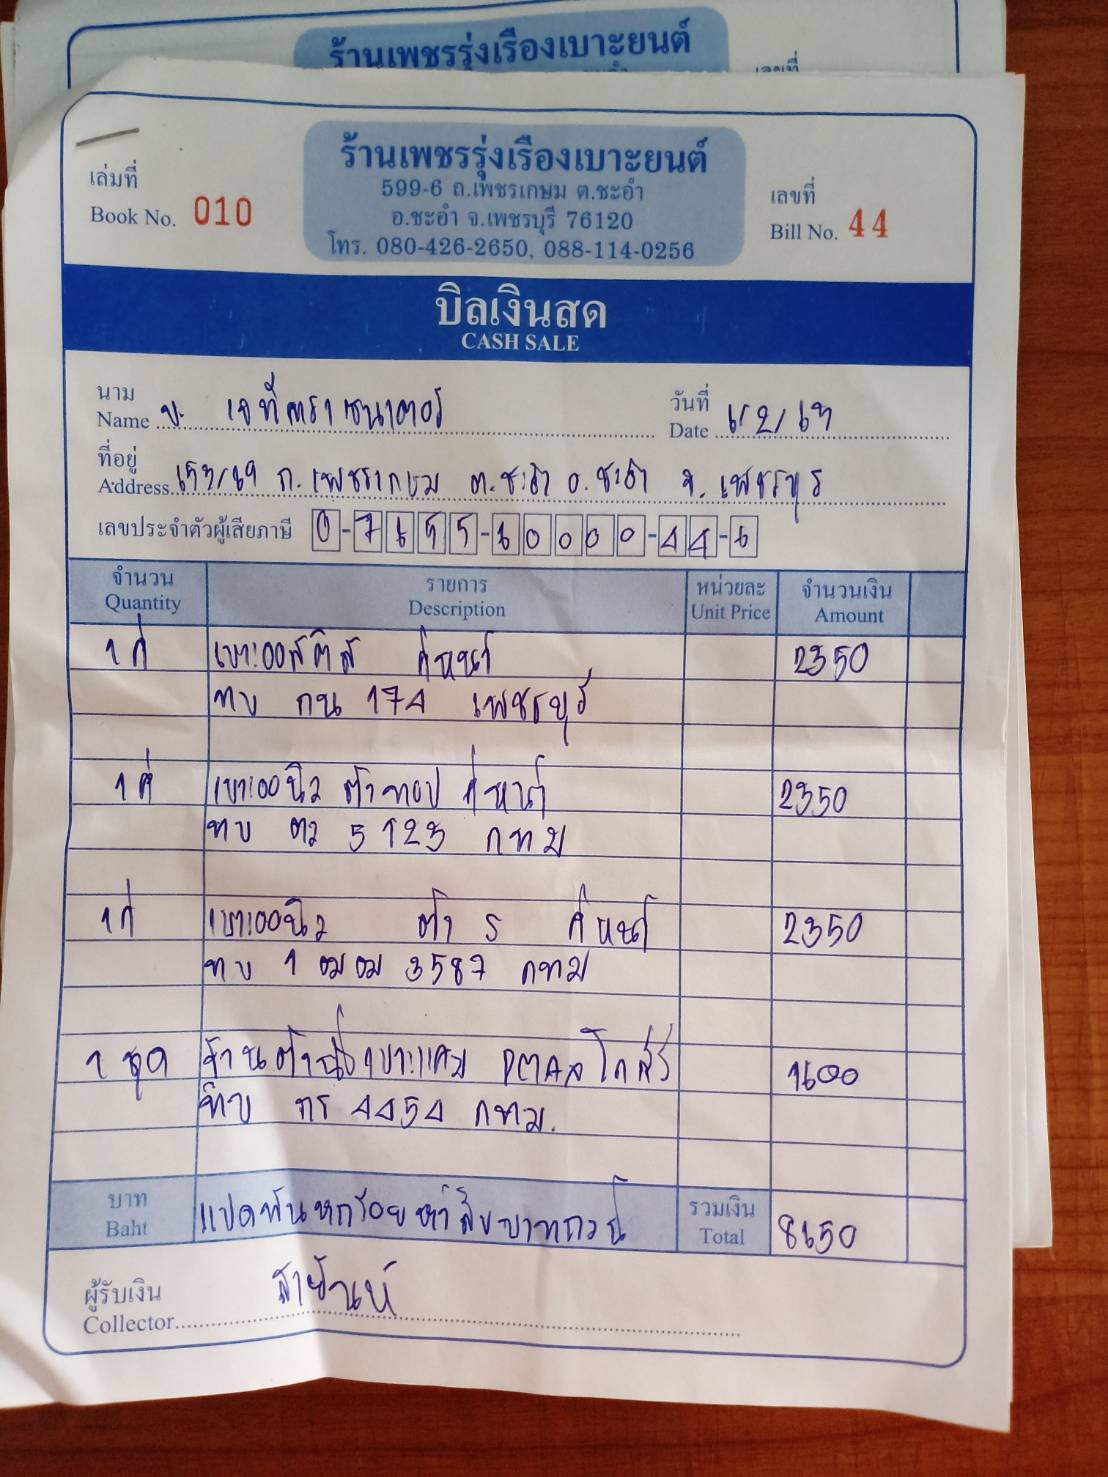 ร้านเพชรรุ่งเรืองเบาะยนต์
เลขที่
ร้านเพชรรุ่งเรืองเบาะยนต์
599-6 ถ.เพชรเกษม ต.ชะอำ
อ.ชะอำ จ.เพชรบุรี 76120
โทร. 080-426-2650, 088-114-0256
เล่มที่
Book No. 010
เลขที่
Bill No. 44
บิลเงินสด
CASH SALE
นาม
Name บ.
วันที่
Date 6/2/67
ที่อยู่
Address ถ.เพชรเกษม ต.ชะอำ อ.ชะอำ จ.เพชรบุรี
เลขประจำตัวผู้เสียภาษี 0-7655-60000-44-6
จำนวน รายการ หน่วยละ จำนวนเงิน
Quantity Description Unit Price Amount
1 คู่ เบาะออสติส คู่หน้า 2350
ทบ กน 174 เพชรบุรี
1 คู่ เบาะอนิว ตัวทอป คู่หน้า 2350
ทบ ตว 5123 กทม
1 คู่ เบาะอนิว ตัว S คู่หน้า 2350
ทบ 1 ฒฒ 3587 กทม
1 ชุด เบาะแคป 1600
ทบ ทร 4454 กทม.
บาท แปดพันหกร้อยห้าสิบบาทถวน รวมเงิน 8650
Baht Total
ผู้รับเงิน สายัณห์
Collector